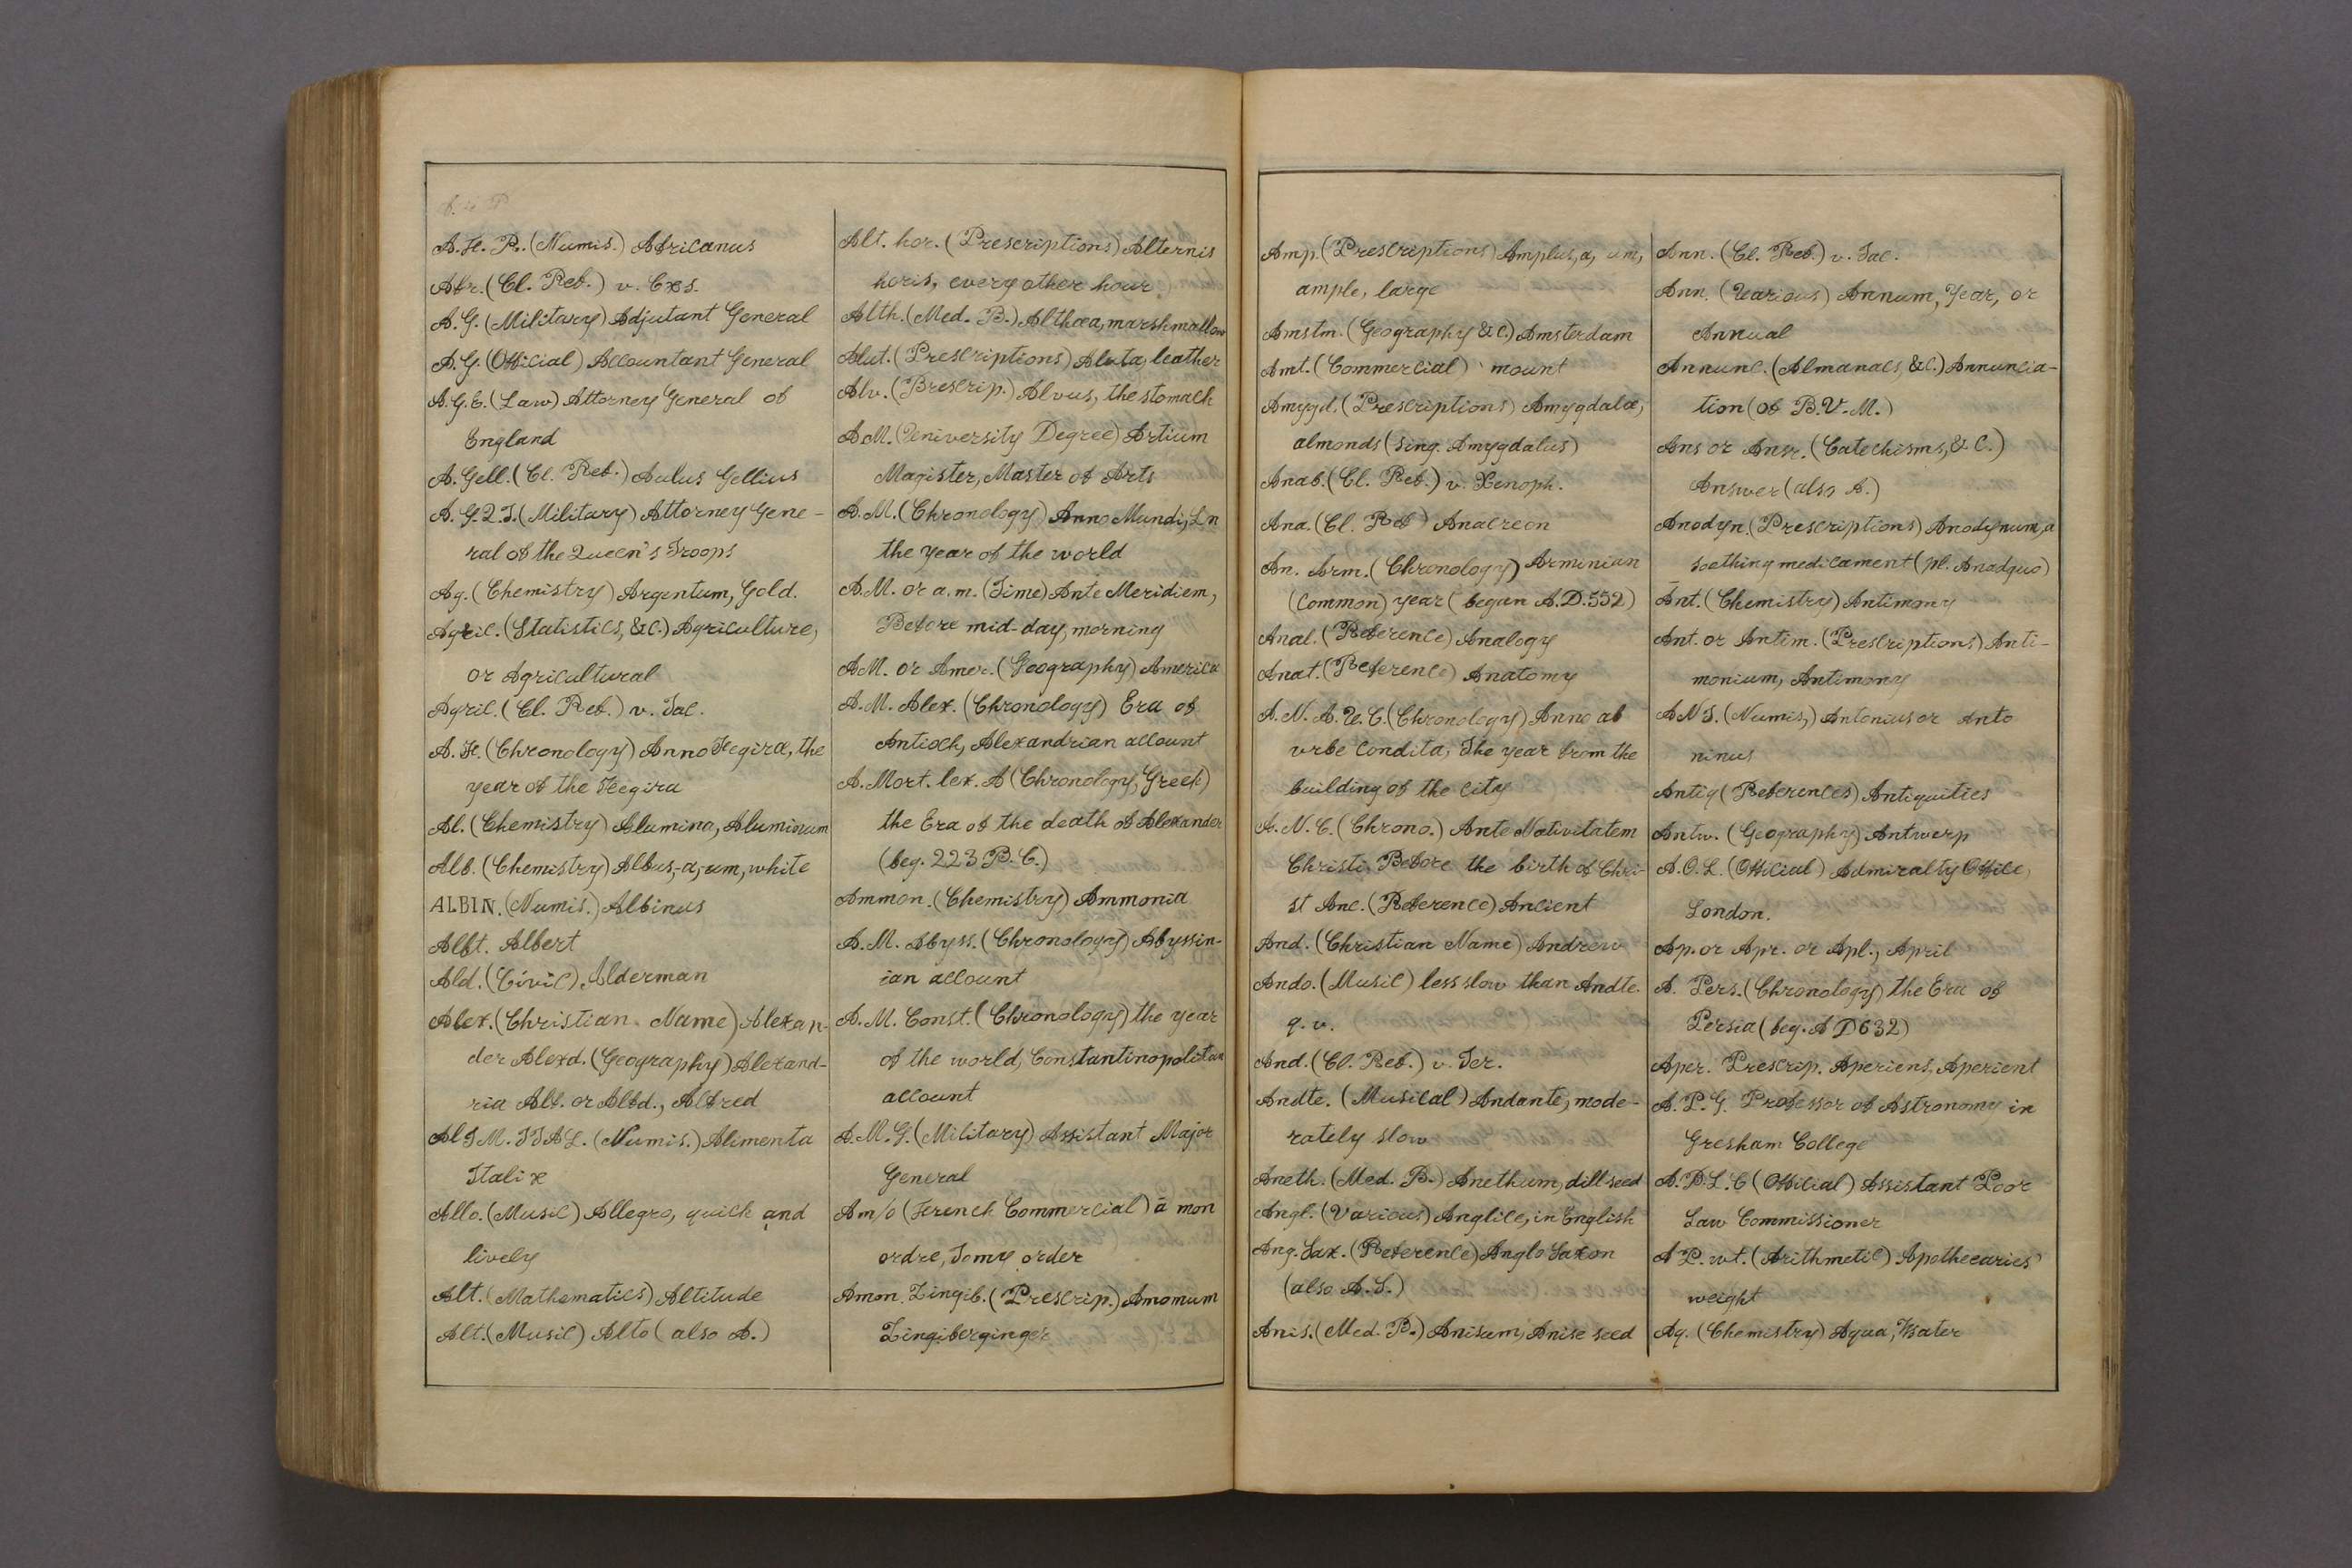 A.F. R. (Numis.) Africanus
Afr. (Cl. Ref.) v. Cæs.
A.G. (Military) Adjutant General
A.G. (Official) Accountant General
A.G.E. (Law) Attorney General of
England
A. Gell. (Cl. Ref.) Aulus Gellius
A.G.Q.T. (Military) Attorney Gene-
ral of the Queen's Troops
Ag. (Chemistry) Argentum, Gold.
Agric. (Statistics, &c.) Agriculture,
or Agricultural
Agric. (Cl. Ref.) v. Tac.
A.H. (Chronology) Anno Hegiræ, the
year of the Hegira
Al. (Chemistry) Alumina, Aluminum
Alb. (Chemistry) Albus,-a,-um, white
ALBIN. (Numis.) Albinus
Albt. Albert
Ald. (Civic) Alderman
Alex. (Christian Name) Alexan-
der Alexd. (Geography) Alexand-
ria Alf. or Alfd., Alfred
AlIM. ITAL. (Numis.) Alimenta
Italiæ
Allo. (Music) Allegro, quick and
lively
Alt. (Mathematics) Altitude
Alt. (Music) Alto (also A.)
Alt. hor. (Prescriptions) Alternis
horis, every other hour
Alth. (Med. B.) Althœa, marshmallow
Alut. (Prescriptions) Aluta, leather
Alv. (Prescrip.) Alvus, the stomach
A.M. (University Degree) Artium
Magister, Master of Arts
A.M. (Chronology) Anno Mundi, In
the year of the world
A.M. or a.m. (Time) Ante Meridiem,
Before mid-day, morning
A.M. or Amer. (Geography) America
A.M. Alex. (Chronology) Era of
Antioch, Alexandrian account
A. Mort. lex. A (Chronology, Greek)
the Era of the death of Alexander
(beg. 223 B.C.)
Ammon. (Chemistry) Ammonia
A.M. Abyss. (Chronology) Abyssin-
ian account
A.M. Const. (Chronology) the year
of the world, Constantinopolitan
account
A.M.G. (Military) Assistant Major
General
Am/o (French Commercial) à mon
ordre, To my order
Amon. Zingib. (Prescrip.) Amomum
Zingiberginger
Amp. (Prescriptions) Amplus, a, um,
ample, large
Amstm. (Geography &c.) Amsterdam
Amt. (Commercial) mount
Amygd. (Prescriptions) Amygdalæ,
almonds (sing. Amygdalus)
Anab. (Cl. Ref.) v. Xenoph.
Ana. (Cl. Ref) Anacreon
An. Arm. (Chronology) Arminian
(Common) year (began A.D. 552)
Anal. (Reference) Analogy
Anat. (Reference) Anatomy
A.N. A.U.C. (Chronology) Anno ab
urbe condita, The year from the
building of the City
A.N.C. (Chrono.) Ante Nativitatem
Christi, Before the birth of Chri-
st Anc. (Reference) Ancient
And. (Christian Name) Andrew
Ando. (Music) less slow than Andte.
q. v.
And. (Cl. Ref.) v. Ter.
Andte. (Musical) Andante, mode-
rately slow
Aneth. (Med. B.) Anethum, dill seed
Angl. (Various) Anglice, in English
Ang. Sax. (Reference) Anglo Saxon
(also A.S.)
Anis. (Med. B.) Anisum, Anise seed
Ann. (Cl. Ref.) v. Tac.
Ann. (Various) Annum, Year, or
Annual
Annunc. (Almanacs, &c.) Annuncia-
tion (of B.V.M.)
Ans or Ansr. (Catechisms, &c.)
Answer (also A.)
Anodyn. (Prescriptions) Anodynum, a
soothing medicament (pl. Anodyno)
Ant. (Chemistry) Antimony
Ant. or Antim. (Prescriptions) Anti-
monium, Antimony
ANT. (Numis.) Antonius or Anto
ninus
Antiq (References) Antiquities
Antw. (Geography) Antwerp
A.O.L. (Official) Admiralty Office,
London.
Ap. or Apr. or Apl., April
A. Pers. (Chronology) the Era of
Persia (beg. A D 632)
Aper. Prescrip. Aperiens, Aperient
A.P.G. Professor of Astronomy in
Gresham College
A.P.L.C (Official) Assistant Poor
Law Commissioner
A P. wt. (Arithmetic) Apothecaries'
weight
Aq. (Chemistry) Aqua, Water